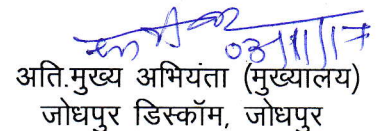 03/11/17
अति.मुख्य अभियंता (मुख्यालय)
जोधपुर डिस्कॉम, जोधपुर